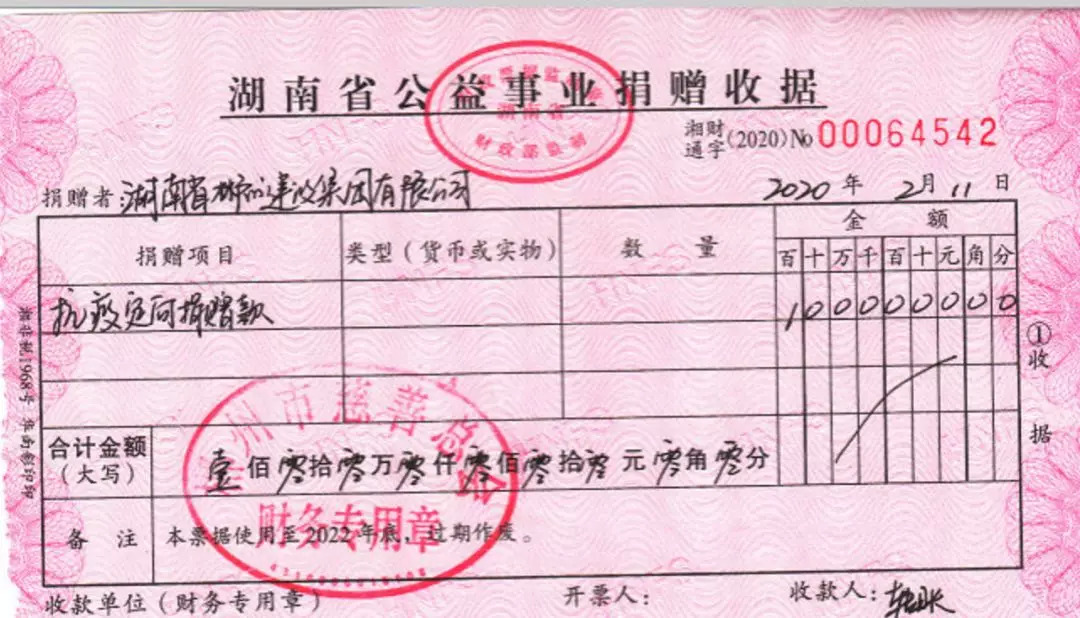 湖南省公益事业捐赠收据
湖南省
财政部监制
湘财通字(2020)No 00064542
捐赠者:湖南省郴州建设集团有限公司 2020年2月11日
捐赠项目 类型(货币或实物) 数量 金额
百十万千百十元角分
抗疫定向捐赠款 100000000
①收据
合计金额(大写) 壹佰零拾零万零仟零佰零拾零元零角零分
备注 本票据使用至2022年底,过期作废。
郴州市慈善总会
财务专用章
收款单位(财务专用章) 开票人: 收款人:转账